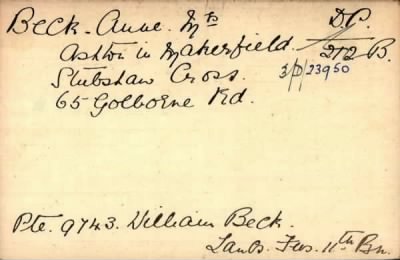 Beck. Anne. Mrs D.P.
Ashton in Makerfield. 212 B.
Stubshaw Cross. 3/D/23950
65 Golborne Rd.
Pte. 9743. William Beck.
Lancs. Fus. 11th Bn.